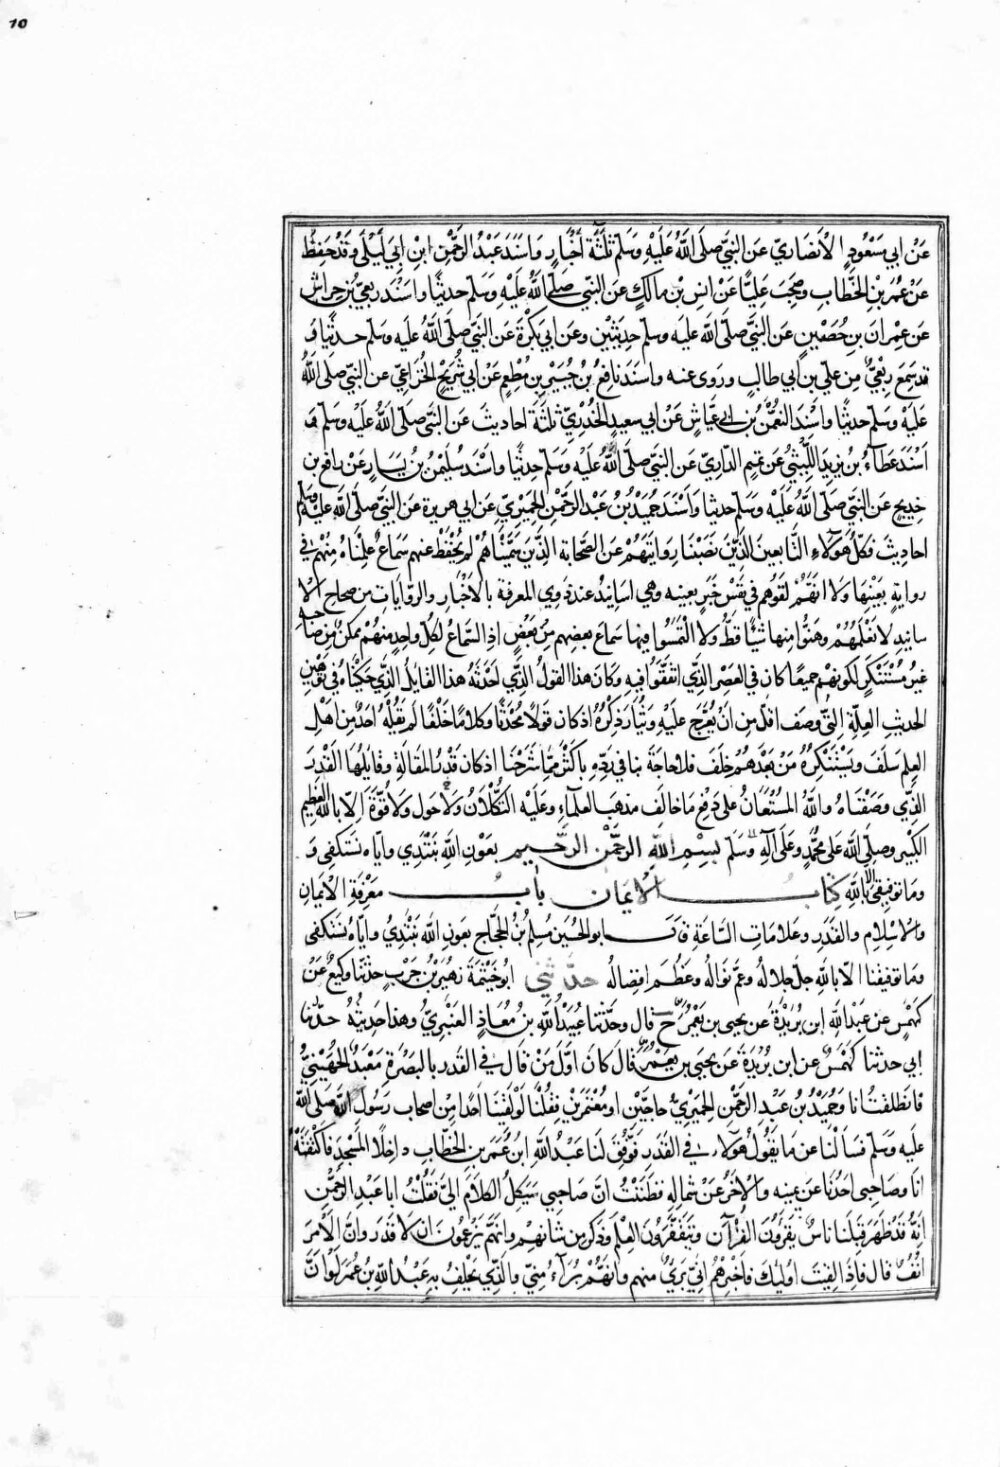 10
عَنْ ابي مَسْعُودٍ الْاَنْصَارِيِّ عَنِ النَّبِيِّ صَلَّى اللَّهُ عَلَيْهِ وَسَلَّم ثَلَثَةَ أَخْبَارٍ وَاَسْنَدَ عَبْدُ الرَّحْمٰنِ ابْنِ اَبِي لَيْلٰى وَقَدْ حَفِظَ
عَنْ عُمَرَ بْنِ الخَطَّابِ وَصَحِبَ عَلِيًّا عَنْ انَسِ بْنِ مالكٍ عَنِ النَّبِي صَلَّى اللَّهُ عَلَيْهِ وَسَلَّم حديثًا واَسْنَدَ رِبْعِيُّ بن حِرَاشٍ
عَن عِمْرانَ بنِ حُصَيْنٍ عَنِ النَّبِيِّ صَلَّى اللَّه عليه وسلّم حَدِيثَيْنِ وعَن ابي بَكْرَةَ عَنِ النَّبِيِّ صَلَّى اللَّهُ عليه وسلّم حديثًا وَ
قد سَمِعَ رِبْعِيٌّ مِن عليّ بن ابي طالبٍ ورَوى عنه واَسْنَدَ نافِعُ بنُ جُبَيْرِ بنِ مُطْعِمٍ عَنْ ابي شُرَيْحٍ الخُزَاعِيِّ عنِ النَّبِيِّ صَلَّى اللَّهُ
عَلَيْهِ وَسَلَّم حديثًا واَسْنَدَ النعْمٰنُ بنُ ابي عَيّاشٍ عَنْ ابي سعيدٍ الخُدْرِيِّ ثَلثةَ احاديثَ عَنِ النَّبِيِّ صَلَّى اللَّهُ عَلَيْهِ وسلّم وَ
اَسْنَدَ عَطآءُ بنُ يزيدَ اللَّيْثِيُّ عَن تميم الدّارِيِّ عَنِ النَّبِيِّ صلى اللَّهُ عَلَيْهِ وَسَلَّم حديثًا واَسْنَدَ سُلَيْمٰنُ بنُ يَسَارٍ عَنْ رافع بن
خديجٍ عَنِ النَّبِيِّ صَلَّى اللَّهُ عَلَيْهِ وَسَلَّم حديثا وَاَسْنَدَ حُمَيْدُ بنُ عبد الرَّحْمٰنِ الحِمْيَرِيُّ عَنْ ابي هريرة عَنِ النَّبِيِّ صَلَّى اللَّهُ عَلَيْهِ وَسَلَّم
احاديثَ فَكُلُّ هٰؤُلاءِ التَّابعينَ الَّذِيْنَ نَصَبْنَا رِوايَتَهُمْ عَنِ الصَّحَابَةِ الَّذِيْنَ سَمَّيْنَاهُمْ لم يُحْفَظْ عَنهم سَمَاعٌ عَلِمْنَاهُ مِنْهُمْ في
روايةٍ بِعَيْنِهَا ولا انّهُمْ لَقُوهُم في نَفْسِ خَبَرٍ بعينه وهي اسانيدُ عند ذَوِي المعرفة بالاَخْبَارِ والرِّوَايَاتِ من صحاح الا
سانيد لا نَعْلَمُهُمْ وهَّنُوا منها شَيْئًا قَطُّ ولا الْتَمَسُوا فيها سماعَ بعضهم مِن بَعْضٍ اذِ السَّمَاعُ لكُلِّ واحدٍ منهُمْ ممكنٌ مِن صاحبه
غيرُ مُسْتَنْكَرٍ لكونهُمْ جميعًا كان في العَصْرِ الَّذِي اتفَقُوا فيهِ وَكَانَ هذا القولُ الَّذِي اَحْدَثَهُ هذا القايلُ الَّذِي حَكَيْنَاهُ في تَوْهينِ
الحديثِ العِلَّةِ الَّتِي وَصَفَ اقلَّ مِن انْ يُعَرَّجَ عَلَيْهِ ويُثَارَ ذِكْرُهُ اذ كان قَولًا مُحْدَثًا وكلامًا خَلْفًا لم يَقُلْهُ احدٌ مِن اَهْلِ
العِلمِ سَلَفَ وَيَسْتَنْكِرُهُ مَنْ بَعْدَهُم خَلَفَ فلا حاجَةَ بِنا في رَدِّهِ بِاكْثَرَ مِمّا شَرَحْنَا اذ كان قَدْرُ المقالَةِ وقايلِهَا القَدْرَ
الَّذِي وصَفْنَاهُ واللَّهُ المُسْتَعَانُ على دفعِ ما خالفَ مذهبَ العلماءِ وعَلَيْهِ التُّكْلَانُ ولَا حول وَلَا قُوَّةَ الّا باللهِ العَظِيمِ
الكَبيرِ وصلى اللَّهُ عَلى محمّدٍ وعَلى آلِهِ وسَلّم بِسْمِ اللهِ الرحمٰن الرحيم بعونِ اللَّهِ نَبْتَدِي وايّاه نَسْتَكفِي وَ
وما توفيقي الّا بالله كِتابُ الْإِيْمَانِ بابُ مَعْرِفَةِ الْاِيمَانِ
والْاِسْلامِ والقَدَرِ وعَلَاماتِ السَّاعَةِ قَالَ ابو الحُسَيْنِ مُسْلِمُ بْنُ الحَجَّاجِ بعون اللَّه نَبْتَدِي وايّاهُ نَسْتَكفِي
وما توفيقُنا الّا باللَّهِ جلّ جلالهُ وعمَّ نَوَالُه وعَظُمَ افضالُه حَدَّثَنِي ابُو خَيْثَمَةَ زهَيْرُ بنُ حَرْبٍ حدّثنا وكيعٌ عَنْ
كهمسٍ عن عَبْدِ اللَّهِ ابنِ بُرَيْدَةَ عَن يحيى بن يَعْمَرَ ح قال وحَدَّثَنا عُبَيْدُ اللَّهِ بن مُعَاذٍ العَنْبَرِيُّ وهذا حَديثُهُ حدّثنا
ابي حدثنا كَهْمَسٌ عن ابنِ بُرَيْدَةَ عَن يحيى بن يَعْمَرَ قالَ كَانَ اوّلَ مَنْ قالَ في القدرِ بالبَصْرَةِ مَعْبَدٌ الجُهَنِيُّ
فَانْطَلَقْتُ انا وَحُمَيْدُ بنُ عَبْدِ الرحمٰنِ الحِمْيَرِيُّ حاجَّيْنِ او مُعْتَمِرَيْنِ فقُلْنَا لَوْ لَقِيْنَا احدًا مِن اصحابِ رَسُولِ اللَّهِ صَلى اللَّه
عليه وسلّم فسَاَلْنَا عن ما يَقُولُ هٰؤلاء في القَدَرِ فَوُفِّقَ لَنا عَبْدُ اللَّهِ ابنُ عُمَرَ بنِ الخَطّابِ داخِلًا المَسْجِدَ فاكْتَنَفْتُهُ
انا وصَاحِبى احَدُنَا عَن يمينِهِ والْآخَرُ عَنْ شمالِهِ فظَنَنْتُ انّ صَاحِبي سَيَكِلُ الكلامَ اليَّ فقُلْتُ ابا عَبدِ الرَّحْمٰنِ
انّهُ قدْ ظَهَرَ قِبَلَنا ناسٌ يَقْرَؤُنَ القُرْآنَ وَيَتَقَفَّرُونَ العِلْمَ وَذَكرَ مِن شانِهِم وانّهُم يَزْعُمُونَ ان لَا قَدَرَ وانَّ الْاَمْرَ
اُنُفٌ قال فاذا لَقِيتَ اولٰيكَ فاَخْبِرْهُمْ اِنِّي بَرِيٌ منهم وانَّهُمْ بُرَآءُ مِنّي والَّذِي يَحْلِفُ بِهِ عَبْدُ اللَّهِ بنُ عُمَرَ لَوْ انَّ